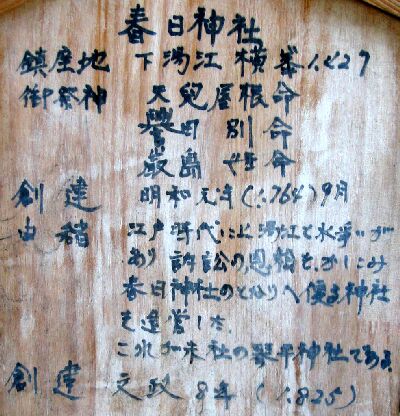 春日神社
鎮座地 下湯江 横峯1,427
御祭神 天児屋根命
誉田別命
厳島 命
創建 明和元年(1,764)9月
由緒 江戸時代に上湯江と水争いが
あり 訴訟の恩 を
春日神社のとなりへ 神社
を造営した
これが末社の琴平神社である
創建 文政8年(1,825)